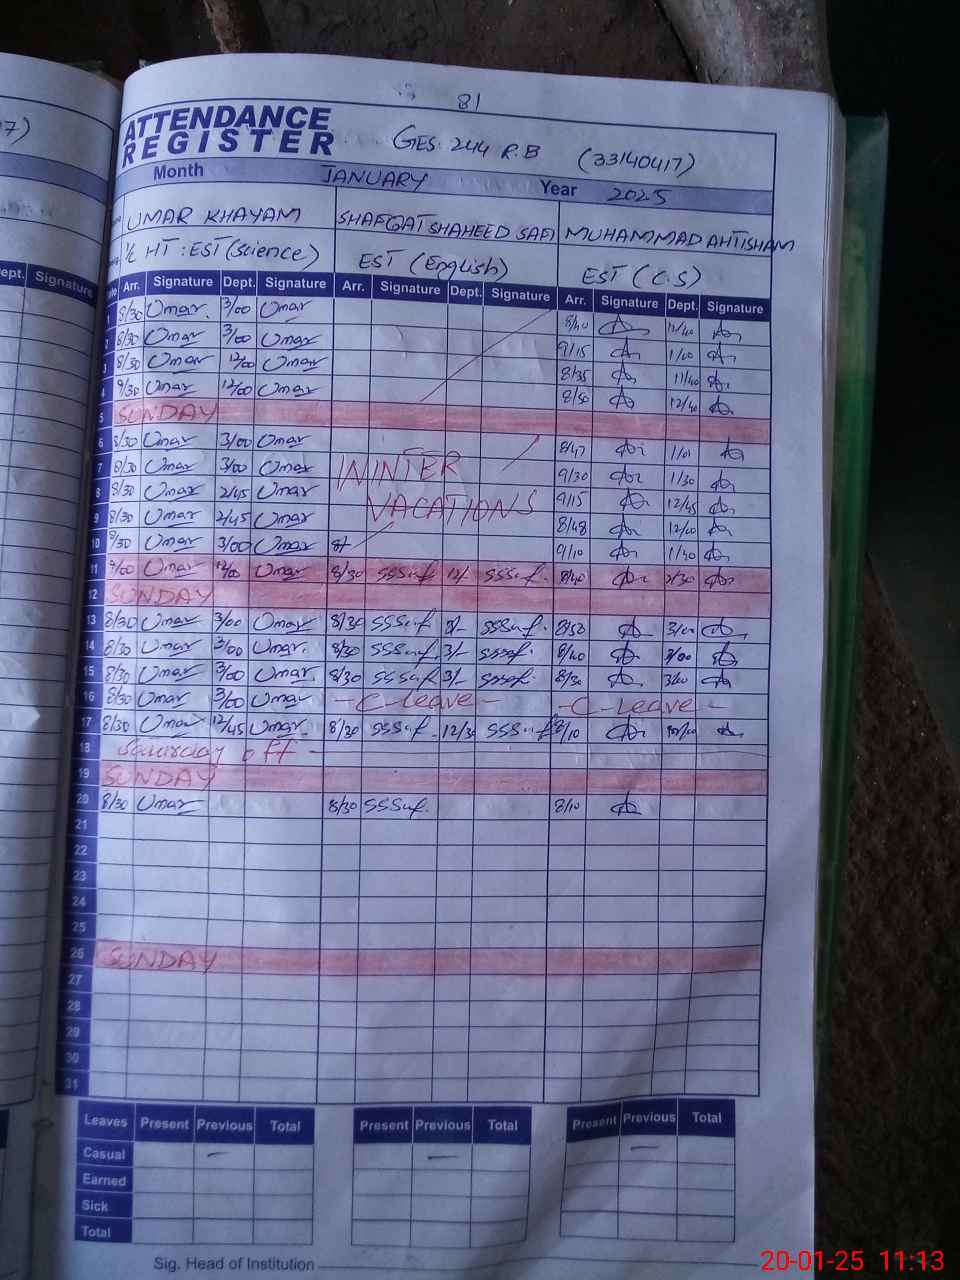 81
ATTENDANCE
REGISTER
GES. 244 R.B (33140417)
Month JANUARY Year 2025
UMAR KHAYAM SHAFQAT SHAHEED SAFI MUHAMMAD AHTISHAM
I/C HT : EST (Science) EST (English) EST (C.S)
Arr. Signature Dept. Signature Arr. Signature Dept. Signature Arr. Signature Dept. Signature
1 8/30 Umar 3/00 Umar 8/40 12/40
2 8/30 Umar 3/00 Umar 9/15 1/00
3 8/30 Umar 12/00 Umar 8/35 11/40
4 9/30 Umar 12/00 Umar 8/50 12/40
5 SUNDAY
6 8/30 Umar 3/00 Umar 8/47 1/01
7 8/30 Umar 3/00 Umar WINTER 9/30 1/30
8 8/30 Umar 2/45 Umar VACATIONS 9/15 12/45
9 8/30 Umar 2/45 Umar 8/48 12/00
10 8/30 Umar 3/00 Umar 9/10 1/40
11 9/00 Umar 12/00 Umar 8/30 12/- 8/40 2/30
12 SUNDAY
13 8/30 Umar 3/00 Umar 8/30 8/50 3/00
14 8/30 Umar 3/00 Umar 8/30 3/- 8/40 3/00
15 8/30 Umar 3/00 Umar 8/30 3/- 8/30 3/00
16 8/30 Umar 3/00 Umar - C-Leave - - C-Leave -
17 8/30 Umar 12/45 Umar 8/30 12/30 8/10
18 Saturday off -
19 SUNDAY
20 8/30 Umar 8/30 8/10
21
22
23
24
25
26 SUNDAY
27
28
29
30
31
Leaves Present Previous Total Present Previous Total Present Previous Total
Casual - - -
Earned
Sick
Total
Sig. Head of Institution
20-01-25 11:13